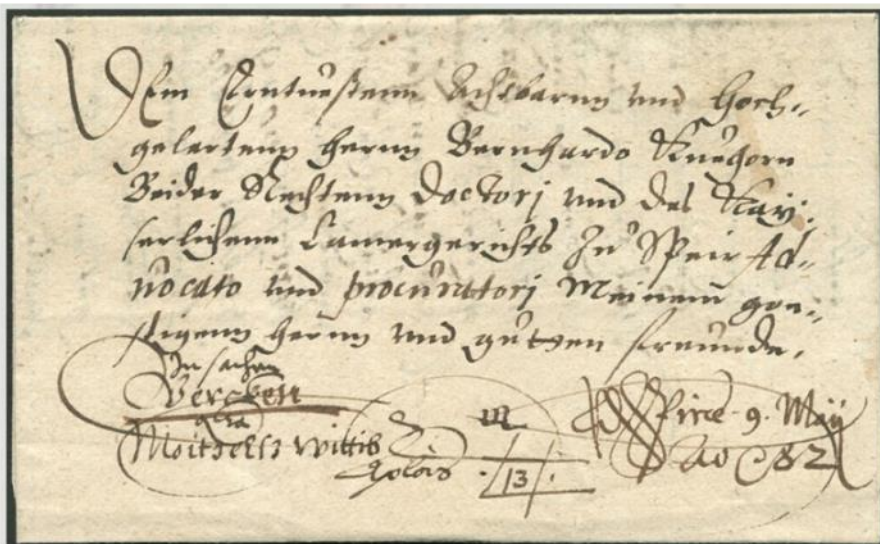 Dem Erntuestenn Achtbarnn und Hoch-
gelertenn herrnn Bernhardo Kuehorn
Beider Rechtenn Doctorj und des Kay-
serlichenn Camergerichts Zu Speir Ad-
uocato und procuratorj Meinem gon-
stigenn herrnn und gutten freunde.
In sachen
Berchem
gegen
Moitzfeltz wittib
13
Spire 9. Maÿ
Ao 82